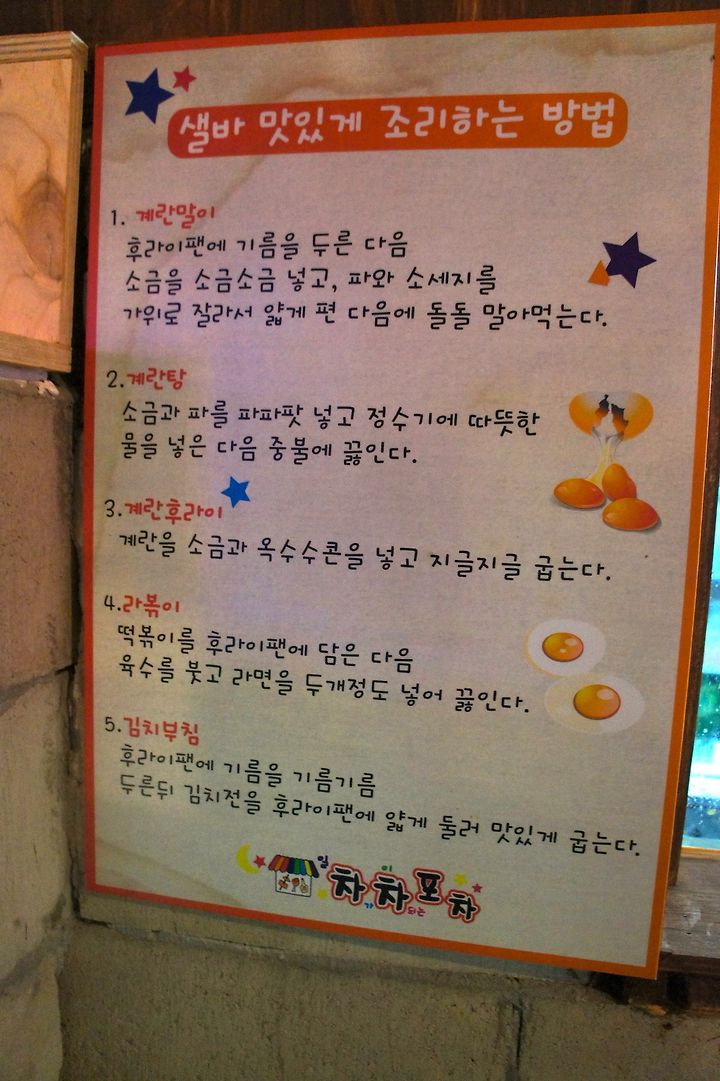 샐바 맛있게 조리하는 방법
1. 계란말이
후라이팬에 기름을 두른 다음
소금을 소금소금 넣고, 파와 소세지를
가위로 잘라서 얇게 편 다음에 돌돌 말아먹는다.
2.계란탕
소금과 파를 파파팟 넣고 정수기에 따뜻한
물을 넣은 다음 중불에 끓인다.
3.계란후라이
계란을 소금과 옥수수콘을 넣고 지글지글 굽는다.
4.라볶이
떡볶이를 후라이팬에 담은 다음
육수를 붓고 라면을 두개정도 넣어 끓인다.
5.김치부침
후라이팬에 기름을 기름기름
두른뒤 김치전을 후라이팬에 얇게 둘러 맛있게 굽는다.
일차가 이차되는 포차